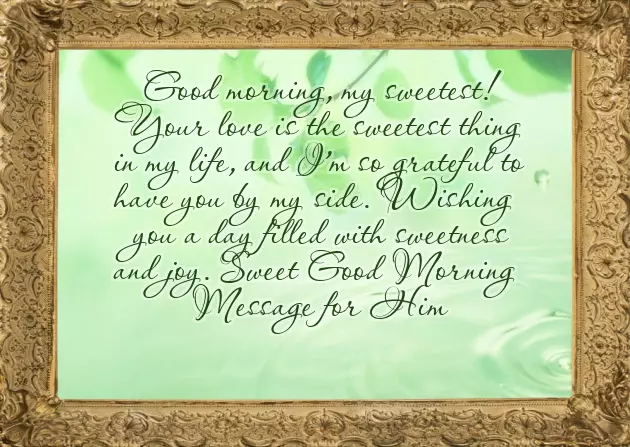 Good morning, my sweetest!
Your love is the sweetest thing
in my life, and I'm so grateful to
have you by my side. Wishing
you a day filled with sweetness
and joy. Sweet Good Morning
Message for Him